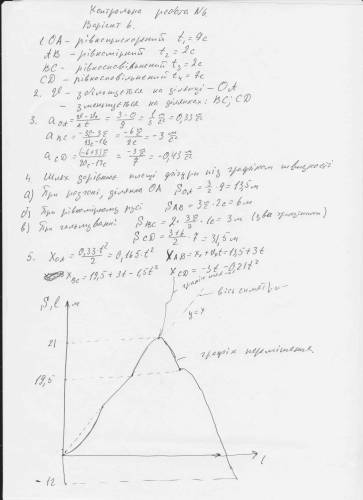 Контрольна робота №6
Варіант 6.
1. OA - рівноприскорений t₁ = 9c
AB - рівномірний t₂ = 2c
BC - рівносповільнений t₃ = 2c
CD - рівносповільнений t₄ = 7c
2. збільшується на ділянці - OA
- зменшується на ділянках: BC; CD
4. Шлях дорівнює площі фігури під графіком швидкості
а) При розгоні, ділянка OA S_OA = 3/2 · 9 = 13,5м
б) При рівномірному русі S_AB = 3 · 2c = 6м
в) При гальмуванні S_BC = 2 · 1c = 3м (два трикутники)
= 31,5м
5. X_OA = 0,33t²/2 = 0,165·t² X_AB = X₀ + v₀t = 13,5 + 3t
X_BC = 19,5 + 3t - 1,5t² X_CD = -3t - 0,21t²
графік шляху
S, l м
вісь симетрії
y = x
21
графік переміщення
19,5
t
-12